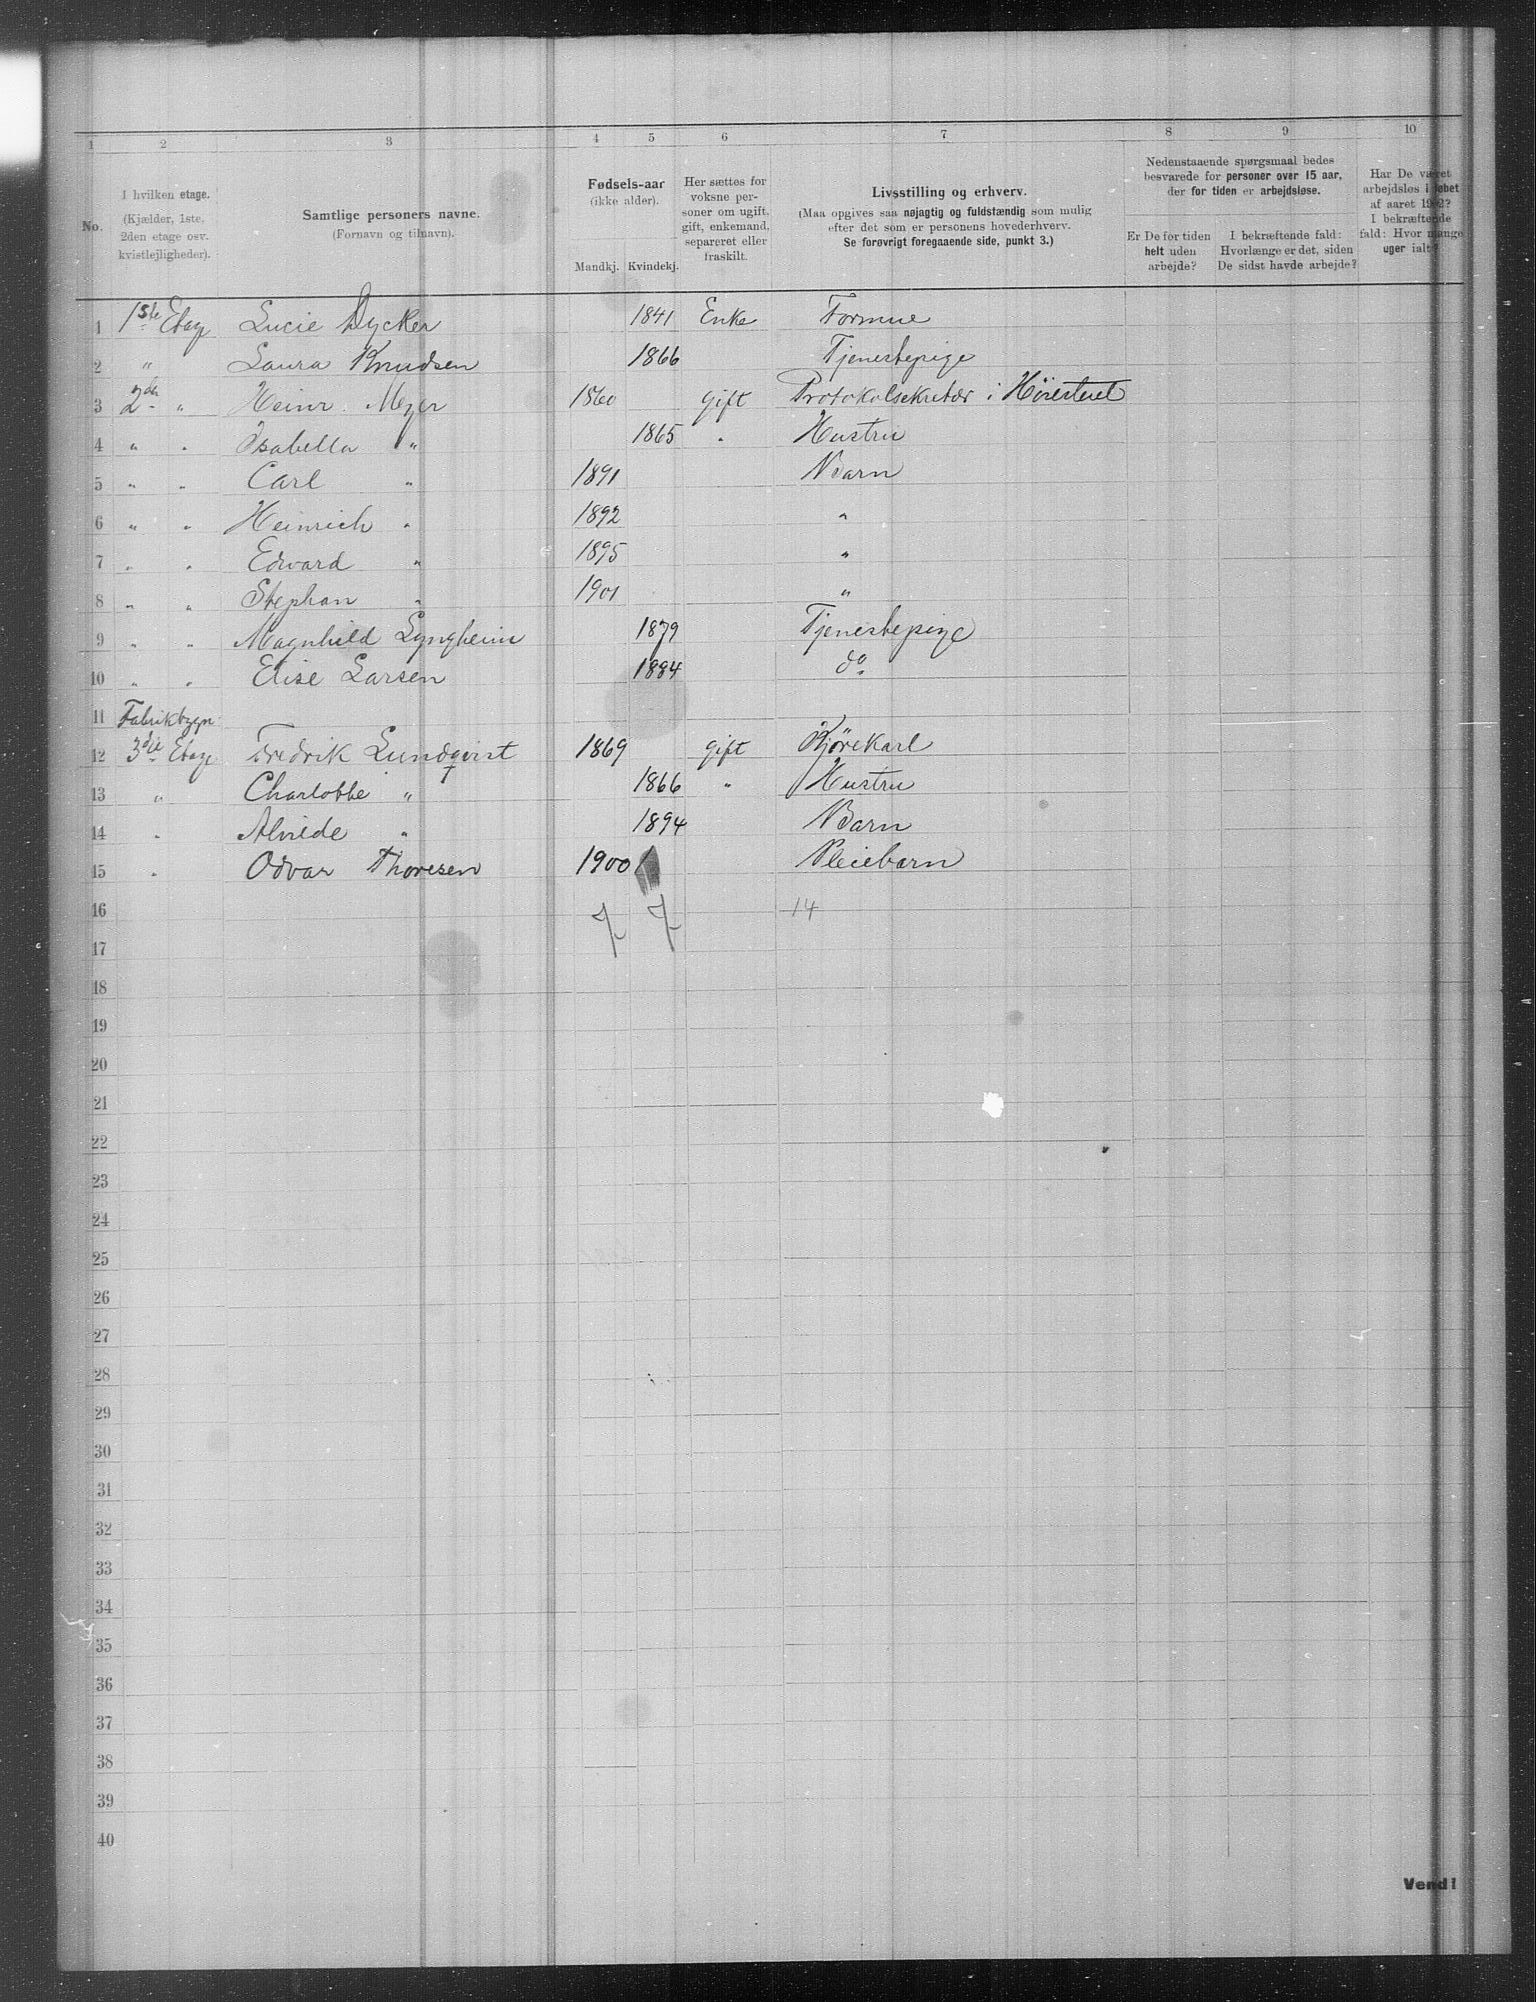 1 2 3 4 5 6 7 8 9 10
No.
I hvilken etage.
(Kjælder, 1ste,
2den etage osv.
kvistlejligheder).
Samtlige personers navne.
(Fornavn og tilnavn).
Fødsels-aar
(ikke alder).
Mandkj. Kvindekj.
Her sættes for
voksne per-
soner om ugift,
gift, enkemand,
separeret eller
fraskilt.
Livsstilling og erhverv.
(Maa opgives saa nøjagtig og fuldstændig som mulig
efter det som er personens hovederhverv.
Se forøvrigt foregaaende side, punkt 3.)
Nedenstaaende spørgsmaal bedes
besvarede for personer over 15 aar,
der for tiden er arbejdsløse.
Er De for tiden
helt uden
arbejde?
I bekræftende fald:
Hvorlænge er det, siden
De sidst havde arbejde?
Har De været
arbejdsløs i løbet
af aaret 1902?
I bekræftende
fald: Hvor mange
uger ialt?
1 1ste Etage Lucie Dycker 1841 Enke Formue
2 " Laura Knudsen 1866 Tjenestepige
3 2den " Heinr. Meyer 1860 gift Protokolsekretær i Høiesteret
4 " " Isabella " 1865 " Hustru
5 " " Carl " 1891 Barn
6 " " Heinrich " 1892 "
7 " " Edward " 1895 "
8 " " Stephan " 1901 "
9 " " Magnhild Lyngheim 1879 Tjenestepige
10 " " Elise Larsen 1884 do
11 Fabrikbygn
12 3die Etage Fredrik Lundqvist 1869 gift Kjørekarl
13 " Charlotte " 1866 " Hustru
14 " Alvilde " 1894 Barn
15 " Odvar Thoresen 1900 Pleiebarn
16 7 7 14
17
18
19
20
21
22
23
24
25
26
27
28
29
30
31
32
33
34
35
36
37
38
39
40
Vend!